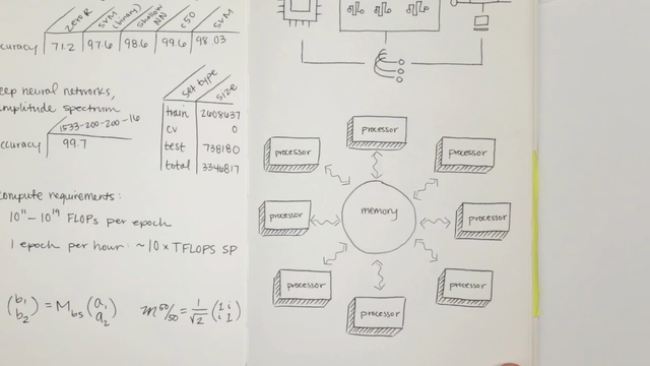 zeroR SVM (binary) shallow NN c50 SVM
ccuracy 71.2 97.6 98.6 99.6 98.03
eep neural networks,
mplitude spectrum
1533-200-200-16
ccuracy 99.7
set type size
train 2608637
cv 0
test 738180
total 3346817
ompute requirements:
10^11 - 10^19 FLOPs per epoch
1 epoch per hour: ~10 x TFLOPS SP
(b1 b2) = Mbs (a1 a2)
50/50 = 1/√2 (1 i i 1)
processor
processor
processor
processor
memory
processor
processor
processor
processor